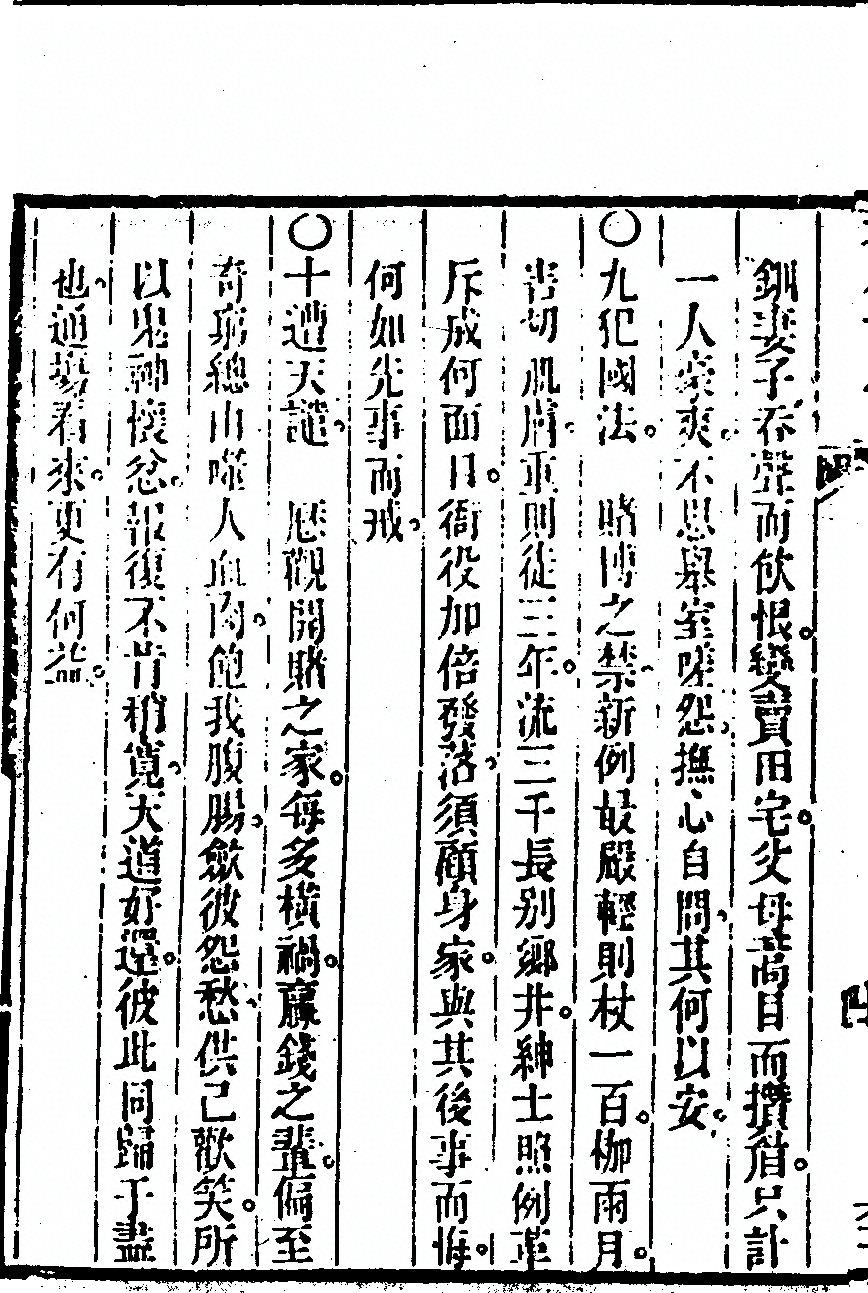 釧妻子吞聲而飲恨。變賣田宅。父母蒿目而攢眉。只計
一人豪爽。不思舉室嗟怨。撫心自問。其何以安。
〇九犯國法。　賭博之禁。新例最嚴。輕則杖一百。枷兩月。
害切肌膚。重則徒三年。流三千長別鄉井。紳士照例革
斥成何面目。衙役加倍發落。須顧身家。與其後事而悔。
何如先事而戒。
〇十遭天譴。　歷觀開賭之家。每多橫禍。贏錢之輩。偏至
奇窮總由噬人血肉。飽我腹腸。斂彼怨愁。供己歡笑。所
以鬼神懷忿。報復不肯稍寬。天道好還。彼此同歸于盡
也。通場看來。更有何益。